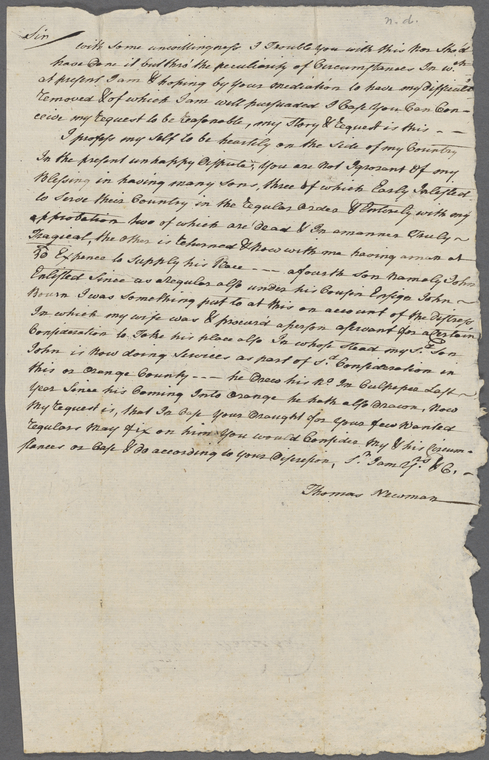 n. d.
Sir
with Some unwillingness I Trouble you with this Nor Shod I
have Done it but thro' the peculiarity of Circumstances In wch
at present I am & hoping by your mediation to have my difficulty
removed & of which I am well persuaded I Case you Can Con-
ceive my request to be reasonable, my Story & request is this - -
I profess my Self to be heartely on the Side of my Country
In the present unhappy Dispute, you are Not Ignorant of my
Blessing in having many Sons three of which Early Inlisted
to Serve their Country in the regular order & Entirely with my
approbation two of which are Dead & In a manner Truly
Tragical, the other is returned & Now with me having a man at
Expence to Supply his Place - - - - a fourth Son Namely John
Enlisted Since as regular also under his Cousin Ensign John
Bourn I was Something put to at this on account of the Distress
In which my wife was & procurd a person a servant for a Certain
Consideration to Take his place also In whose Stead my Sd Son
John is Now doing Services as part of Sd Consideration in
this or Orange County - - - he Drew his No In Culpeper Last
year Since his Coming Into Orange he hath also Drawn, Now
my request is, that In Case your Draught for your few Wanted
regulars may fix on him you would Consider my & his Circum-
stances or Case & do according to your Discresion, Sr I am yrs &C.
Thomas Newman